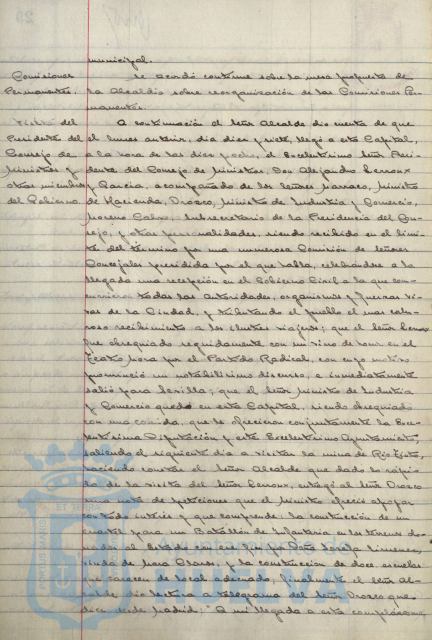 municipal.
Comisiones Permanentes.
Se acordó continúe sobre la mesa propuesta de
la Alcaldía sobre reorganización de las Comisiones Per-
manentes.
Visita del Presidente del Consejo de Ministros y otros miembros del Gobierno
A continuación el Señor Alcalde dió cuenta de que
el lunes anterior, día diez y siete, llegó a esta Capital,
a la hora de las diez y ocho, el Excelentísimo Señor Presi-
dente del Consejo de Ministros, Don Alejandro Lerroux
y García, acompañado de los señores Marraco, Ministro
de Hacienda, Orozco, Ministro de Industria y Comercio,
Moreno Calvo, Subsecretario de la Presidencia del Con-
sejo, y otras personalidades, siendo recibido en el límite
del término por una numerosa Comisión de señores
Concejales presidida por el que habla, celebrándose a la
llegada una recepción en el Gobierno Civil a la que con-
currieron todas las autoridades, organismos y fuerzas vi-
vas de la Ciudad, y tributando el pueblo el más calu-
roso recibimiento a los ilustres viajeros; que el Señor Lerroux
fue obsequiado seguidamente con un vino de honor en el
Teatro Mora por el Partido Radical, con cuyo motivo
pronunció un notabilísimo discurso, e inmediatamente
salió para Sevilla; que el Señor Ministro de Industria
y Comercio quedó en esta Capital, siendo obsequiado
con una comida, que le ofrecieron conjuntamente la Exce-
lentísima Diputación y este Excelentísimo Ayuntamiento,
saliendo el siguiente día a visitar la mina de Río Tinto,
haciendo constar el Señor Alcalde que dado lo rápi-
do de la visita del Señor Lerroux, entregó al Señor Orozco
una nota de peticiones que el Ministro ofreció apoyar
con todo interés y que comprende: la construcción de un
cuartel para un Batallón de Infantería en los terrenos do-
nados al Estado con ese fin por Doña Jimenez,
viuda de Mora Claros, y la construcción de doce escuelas
que carecen de local adecuado; finalmente el Señor Al-
calde dió lectura a telegrama del Señor Orozco que
dice desde Madrid: "A mi llegada a esta compláceme